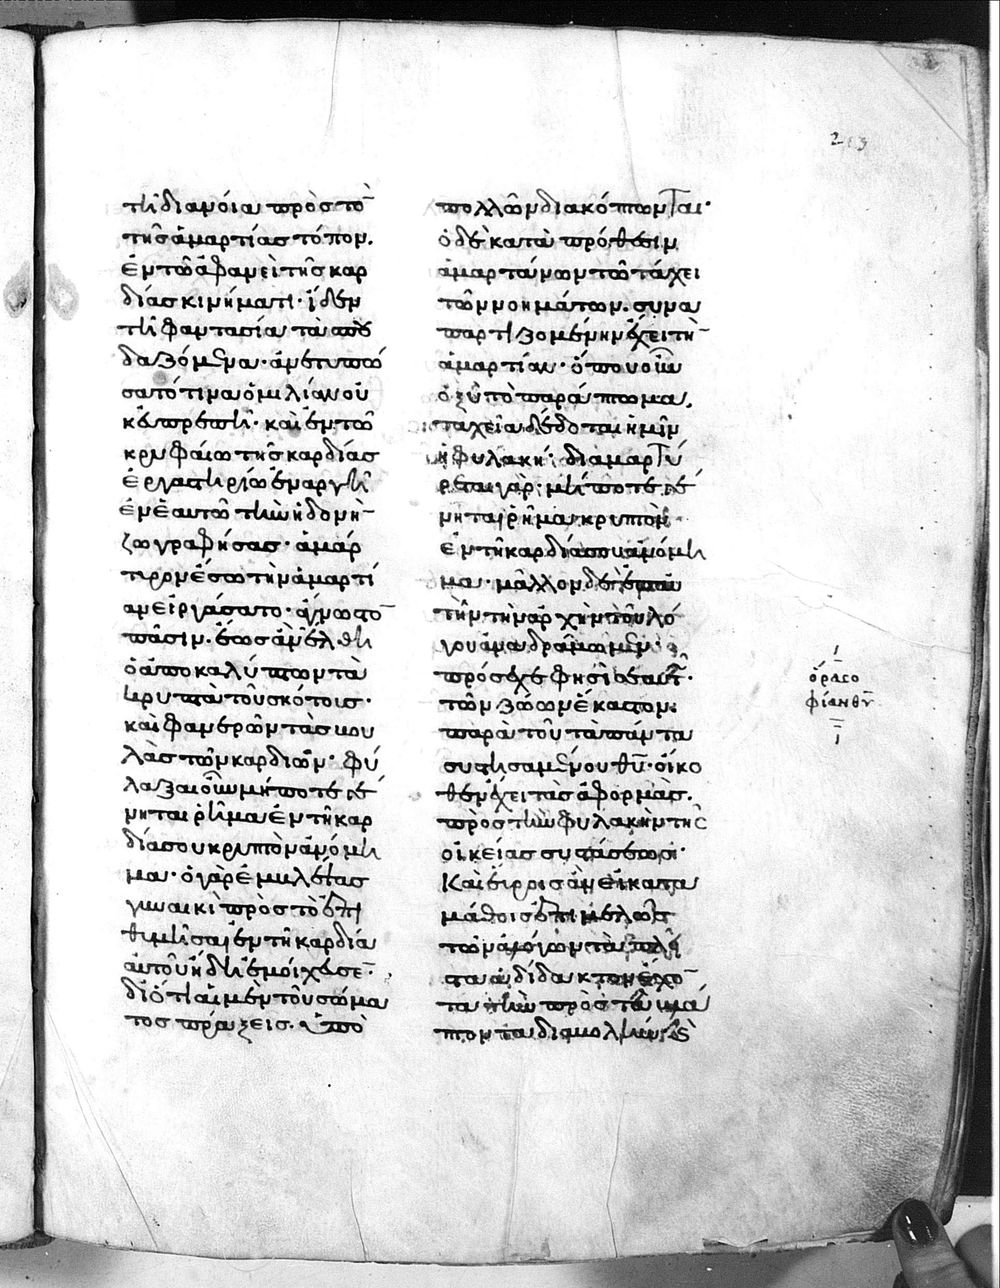 203
τῆ διανοία πρὸς τὸ
τῆς ἁμαρτίας τόπον.
ἐν τῶ ἀφανεῖ τῆς καρ
δίας κινήματι· ἴδεν
τῆ φαντασία τὰ σπου
δαζόμενα· ἀνετυπώ
σατό τινα ὁμιλίαν οὐ
κ εὐπρεπῆ· καὶ ἐν τῶ
κρυφαίω τῆς καρδίας
ἐργαστηρίω ἐναργῆ
ἐν ἑαυτῶ τὴν ἡδονὴν
ζωγραφήσας· ἁμάρ
τυρον ἔσω τὴν ἁμαρτί
αν εἰργάσατο· ἄγνωστον
πᾶσιν. ἕως ἂν ἔλθη
ὁ ἀποκαλύπτων τὰ
κρυπτὰ τοῦ σκότους·
καὶ φανερῶν τὰς βου
λὰς τῶν καρδιῶν· φύ
λαξαι οὖν μήποτε γέ
νηται ῥῆμα ἐν τῆ καρ
δία σου κρυπτὸν ἀνόμη
μα· ὁ γὰρ ἐμβλέψας
γυναικὶ πρὸς τὸ ἐπι
θυμῆσαι ἐν τῆ καρδία
αὐτοῦ ἤδη ἐμοίχευσεν·
διότι αἱ μὲν τοῦ σώμα
τος πράξεις. ὑπὸ
πολλῶν διακόπτονται·
ὁ δὲ κατὰ πρόθεσιν
ἁμαρτάνων τῶ τάχει
τῶν νοημάτων. συνα
παρτιζομένην ἔχει τὴν
ἁμαρτίαν· ὅπου οὖν
ὀξὺ τὸ παράπτωμα,
ταχεῖα δέδοται ἡμῖν
ἡ φυλακή· διαμαρτύ
ρεται γὰρ· μήποτε γέ
νηται ῥῆμα κρυπτὸν
ἐν τῆ καρδία σου ἀνόμη
μα· μᾶλλον δὲ ἐπ' αὐ
τὴν τὴν ἀρχὴν τοῦ λό
γου ἀναδράμωμεν
πρόσεχε φησὶ σεαυτῶ·
τῶν ζώων ἕκαστον
παρὰ τοῦ τὰ πάντα
συστησαμένου θυ· οἴκο
θεν ἔχει τὰς ἀφορμὰς.
πρὸς τὴν φυλακὴν τῆς
οἰκείας συστάσεως·
Καὶ εὕροις ἂν εἰ κατα
μάθοις ἐπιμελῶς
τῶν ἀλόγων τὰ πολλὰ
στα ἀδίδακτον ἔχον
τα τὴν πρὸς τὸ βλά
πτον τα διαβολὴν
ὅρα σο
φίαν θυ